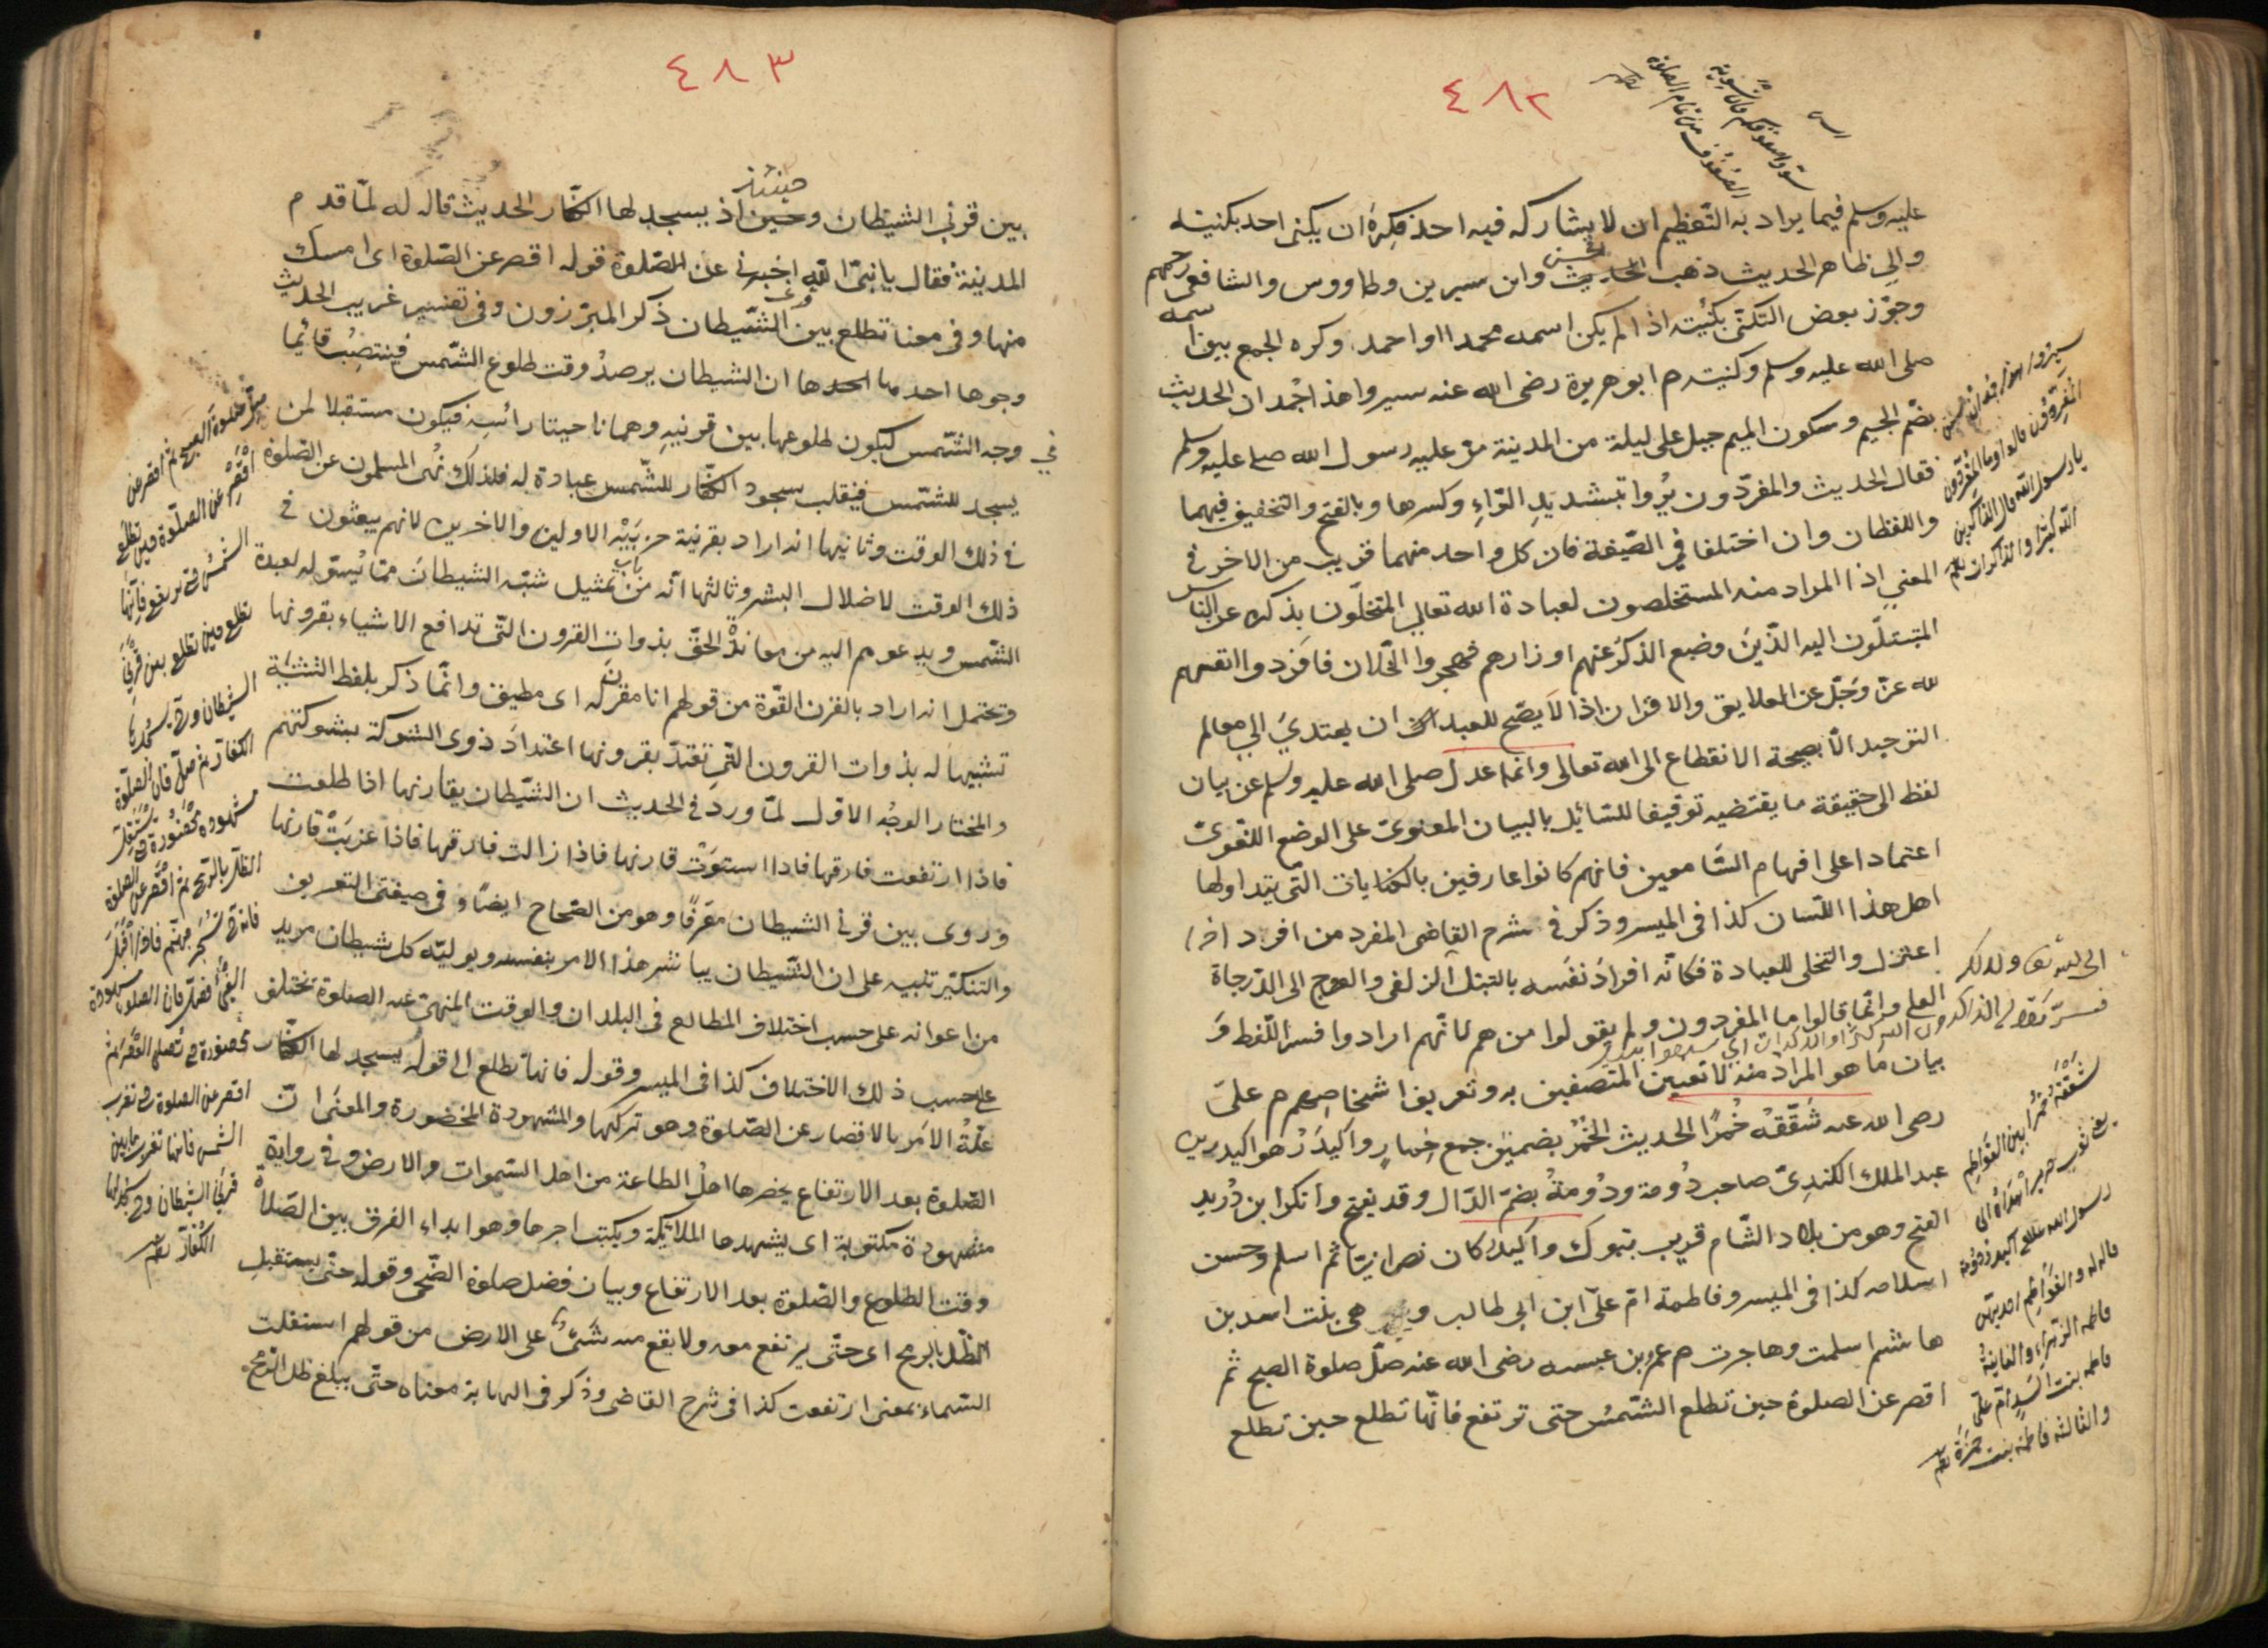 ٤٨٢
سووا صفوفكم فان تسوية
الصفوف من تمام الصلاة
عليه وسلم فيما يراد به التعظيم ان لا يشاركه فيه احد فكره ان يكنى احد بكنيته
والي ظاهر الحديث ذهب الحسن وابن سيرين وطاووس والشافعي رحمهم
وجوّز بعض التكنّى بكنيته اذا لم يكن اسمه محمدا او احمد وكره الجمع بين اسمه
صلى الله عليه وسلم وكنيته م ابو هريرة رضى الله عنه سيروا هذا جُمدان الحديث
بضم الجيم وسكون الميم جبل على ليلة من المدينة مرّ عليه رسول الله صلى عليه وسلم
فقال الحديث والمفرّدون يُروا بتشديدِ الرّاءِ وكسرها وبالفتح والتخفيف فيهما
واللفظان وان اختلفا في الصّيغة فان كل واحد منهما قريب من الاخر في
المعني اذا المراد منه المستخلصون لعبادة الله تعالي المتخلّون بذكره عن الناس
المتبتلّون اليه الّذينَ وضع الذكرُ عنهم اوزارهم فهجروا الخلّان فافردوا انفسهم
لله عزّ وجلّ عن العلايق والاقران اذا لَا يصّح للعبد ان يهتدىَ الي معالم
التوحيد الّا بصحة الانقطاع الى الله تعالى وانما عدل صلى الله عليه وسلم عن بيان
لفظ الى حقيقة ما يقتضيه توقيفا للسّايل بالبيان المعنوىّ على الوضع اللغوىّ
اعتمادا على افهام السّامعين فانهم كانوا عارفين بالكنايات التّى يتداولها
اهل هذا اللسان كذا فى الميسر وذكر فى شرح القاضى المفرد من افرد اذا
اعتزل والتخلى للعبادة فكانّه افرادَ نفَسه بالتبتل الزلفى والعروج الى الدّرجاة
العلى وانّما قالوا ما المفردون ولم يقولوا من هم لانّهم ارادوا فسرَ اللّفط وَ
بيان مَا هو المراد منه لا تعيين المتصفين به وتعريف اشخاصهم م علىّ
رصى الله عنه شَقّقْهُ خُمرًا الحديث الخُمُرُ بضميّن جمع خِمارٍ واكيدَرُ هو اكيدر بن
عبد الملك الكندىّ صاحب دُومة ودُومةُ بضمّ الدّال وقد يفتح وانكر ابن دُريد
الفتح وهو من بلاد الشّام قريب بتبوك واكيدرُ كان نصرانيّا ثم اسلم وحسن
اسلامه كذا فى الميسر وفاطمة امّ علىّ ابن ابى طالب هى بنت اسد بن
هاشم اسلمت وهاجرت م عمرو بن عبسه رضى الله عنه صلّ صلوة الصبح ثم
اقصر عن الصلوة حين تطلع الشّمسُ حتى ترتفع فانّها تطلع حين تطلع
سيروا هذا جمدان سبق
المفردون قالوا وما المفردون
يا رسول الله قال الذاكرين
الله كثيرا والذاكرات
شققه خُمُرا بين الفواطم
رسول الله
فاطمة الزهراء والثانية
فاطمه بنت اسد ام علىّ
والثالثه فاطمة بنت حمزة
٤٨٣
بين قرني الشيطان وحينئذ يسجد لها الكفّار الحديث قاله له لمّا قدم
المدينة فقال يا نبىّ الله اخبرنى عن الصّلوة قوله اقصر عن الصّلوة اى امسك
منها وفى معنا تطلع بين قرنى الشّيطان ذكر المبرّزون وفى تفسير غريب الحديث
وجوها احدها ان الشيطان يرصدُ وقت طلوع الشّمس فينتصِبُ قائِما
في وجه الشّمس ليكون طلوعها بين قرنيهِ وهما ناحيتا رائسِه فيكون مستقبلا لمن
يسجد للشمّس فينقلب سجود الكفّار للشّمس عبادة له فلذلك نُهى المسلمون عن الصّلوة
فى ذلك الوقت وثانيها انه اراد بقرنية حزبَيْهِ الاولين والاخرين لانهم يبعثون في
ذلك الوقت لاضلال البشر وثالثها انّه من باب تمثيل شبّه الشيطانَ ممّا يُسوّله لعبدة
الشّمس ويدعوهم اليه من معاندةْ الحقّ بذوات القرون التّى تدافع الاشياء بقرونها
وتحتمل انه اراد بالقرن القّوة من قولهم انا مقرن له اى مطيق وانّما ذكر بلفظ التثنيَة
تشبيهاً له بذوات القرون التّي تعتدّ بقرونها اعتدادَ ذوى الشوكة بشوكتهم
والمختار الوجُه الاوّل لمّا وردَ فى الحديث ان الشّيطان يقارنها اذا طلعت
فاذا ارتفعت فارقها فاذا استوَتْ قارنها فاذا زالت فارقها فاذا غربَتْ قارنها
وروى بين قرني الشيطان معّرفًا وهو من الصّحاح ايضًا وفى صيغتى التعريف
والتنكيّر تنبيه على ان الشّيطان يباشر هذا الامر بنفسه ويوليّه كل شيطان مريد
من اعوانه على حسب اختلاف المطالع فى البلدان والوقت المنهىّ عنه الصلوة تختلف
على حسب ذلك الاختلاف كذا فى الميسر وقوله فانها تطلع الى قوله يسجد لها الكفّار
علّةُ الامَر بالاقصار عن الصّلوة وهو تركها والمشهودة المحضورة والمعنَى انّ
الصّلوة بعد الارتفاع يحضرها اهلُ الطاعة من اهل السّموات والارض وفى رواية
مشهودة مكتوبة اى يشهدها الملائكة ويكتب اجرها وهو ابداء الفرق بين الصّلاة
وقت الطلوع والصّلوة بعد الارتفاع وبيان فضل صلوة الضّحى وقوله حتّى يستقبلِ
الظّل بالرمح اى حتّى يرتفع معه ولا يقع منه شَىْءٌ على الارض من قولهم استقلت
السّماء بمعنى ارتفعت كذا فى شرح القاضى وذكر فى النهاية معناه حتّى يبلغ ظل الرّمح
صلّ صلوة الصبح ثم اقصر عن
اقْصِرْ عن الصلوة حين تطلع
الشمس حتى ترتفع فانّها
تطلع حين تطلع بين قرنَىِ
الشيطان
الكفار ثم صلّ فان الصلوة
مشهودة محضورة حتى يستقلّ
الظلّ بالرمح ثم اقصر عن الصلوة
فانه حينئذ تُسْجَر جهنّم فاذا اقبل
الفىْءُ فصلّ فان الصلوة مشهودة
محضورة حتى تصلى العصر ثم
اقصر عن الصلوة حتى تغرب
الشمس فانها تغرب بين
قرنى الشيطان
الكفار